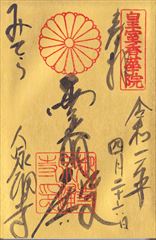 皇室香華院
奉拝
令和二年
四月二十六日
霊明殿
みてら
泉涌寺